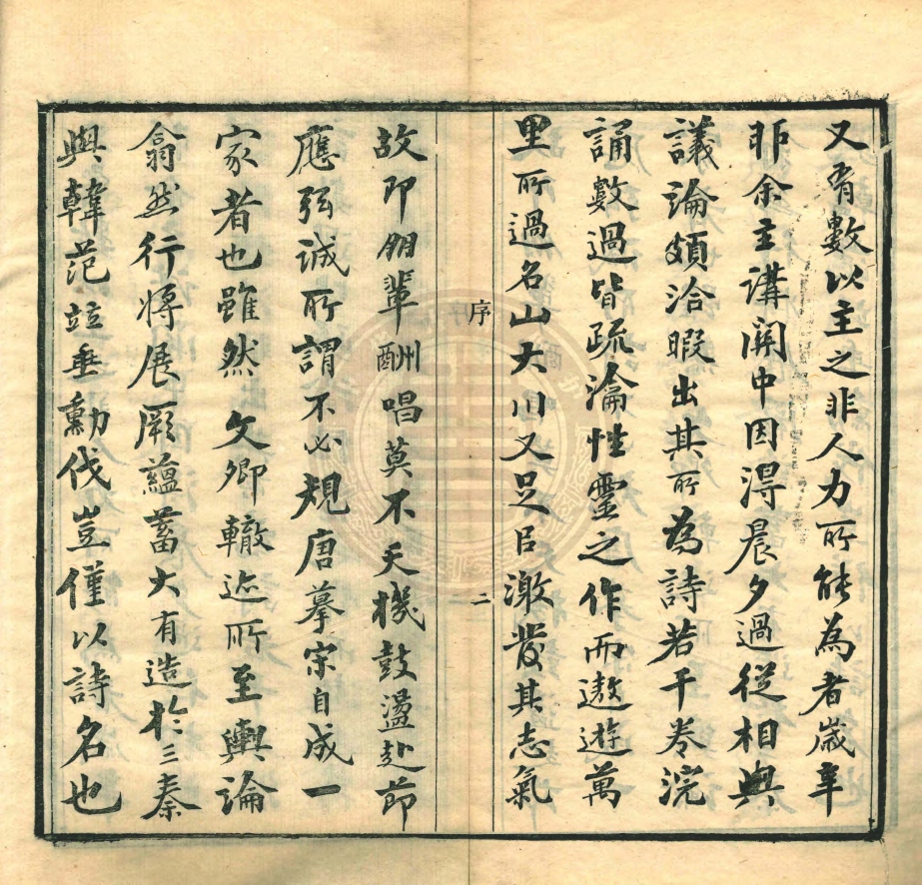 又有數以主之非人力所能為者歲辛
丣余主講關中因淂晨夕過從相與
議論頗洽暇出其所為詩若干卷浣
誦數過皆疏瀹性靈之作而遨遊萬
里所過名山大川又足㠯激發其志氣
序
二
故即朋輩酬唱莫不天機鼓盪赴節
應弦誠所謂不必規唐摹宋自成一
家者也雖然文卿轍迹所至輿論
翕然行將展厥蘊蓄大有造於三秦
與韓范竝垂勳伐豈僅以詩名也